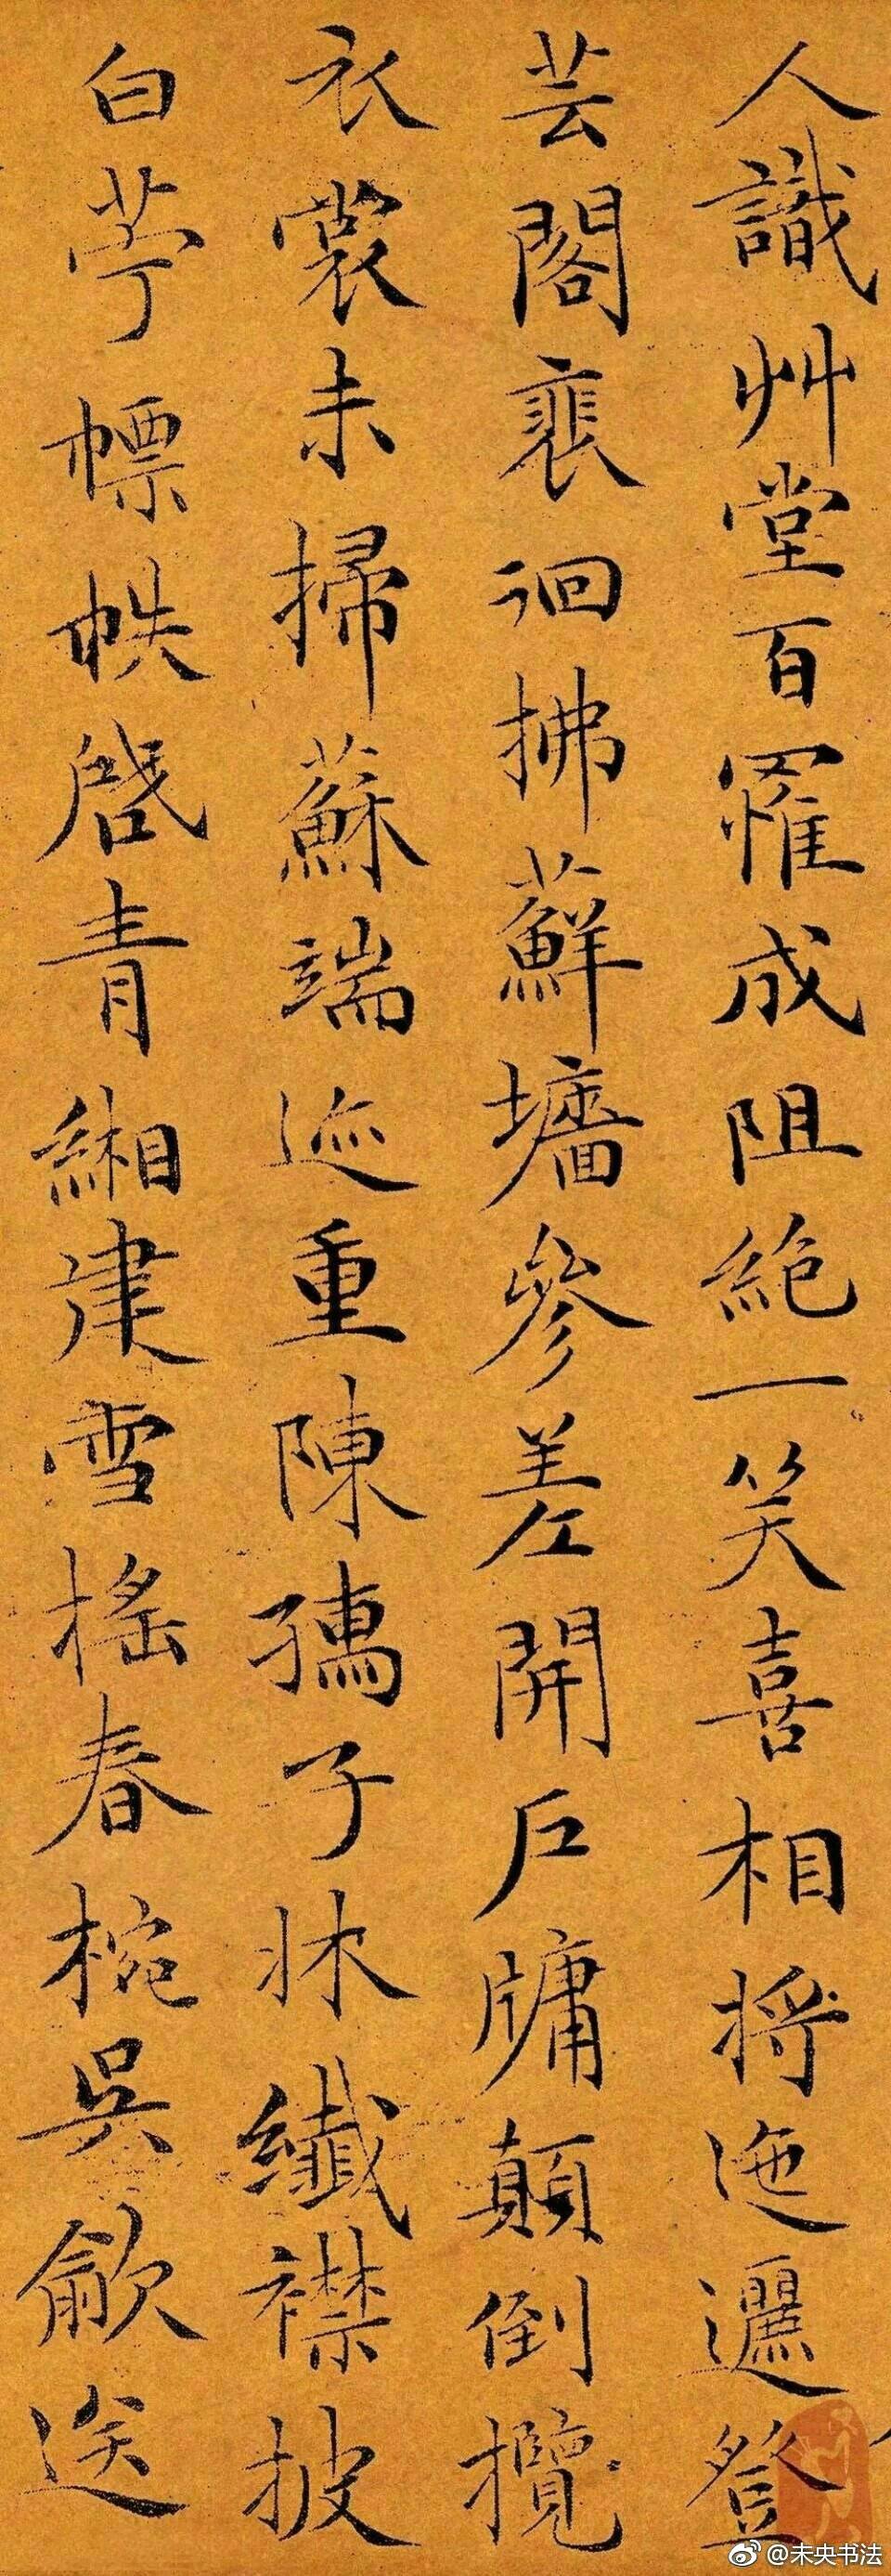 人識艸堂百罹成阻絶一笑喜相將迤邐登
芸閣裴徊拂蘚墻參差開戶牗顛倒攬
衣裳未掃蘇端迹重陳孺子牀纖襟披
白苧幖帙啓青緗建雪搖春椀吳歈送
@未央书法